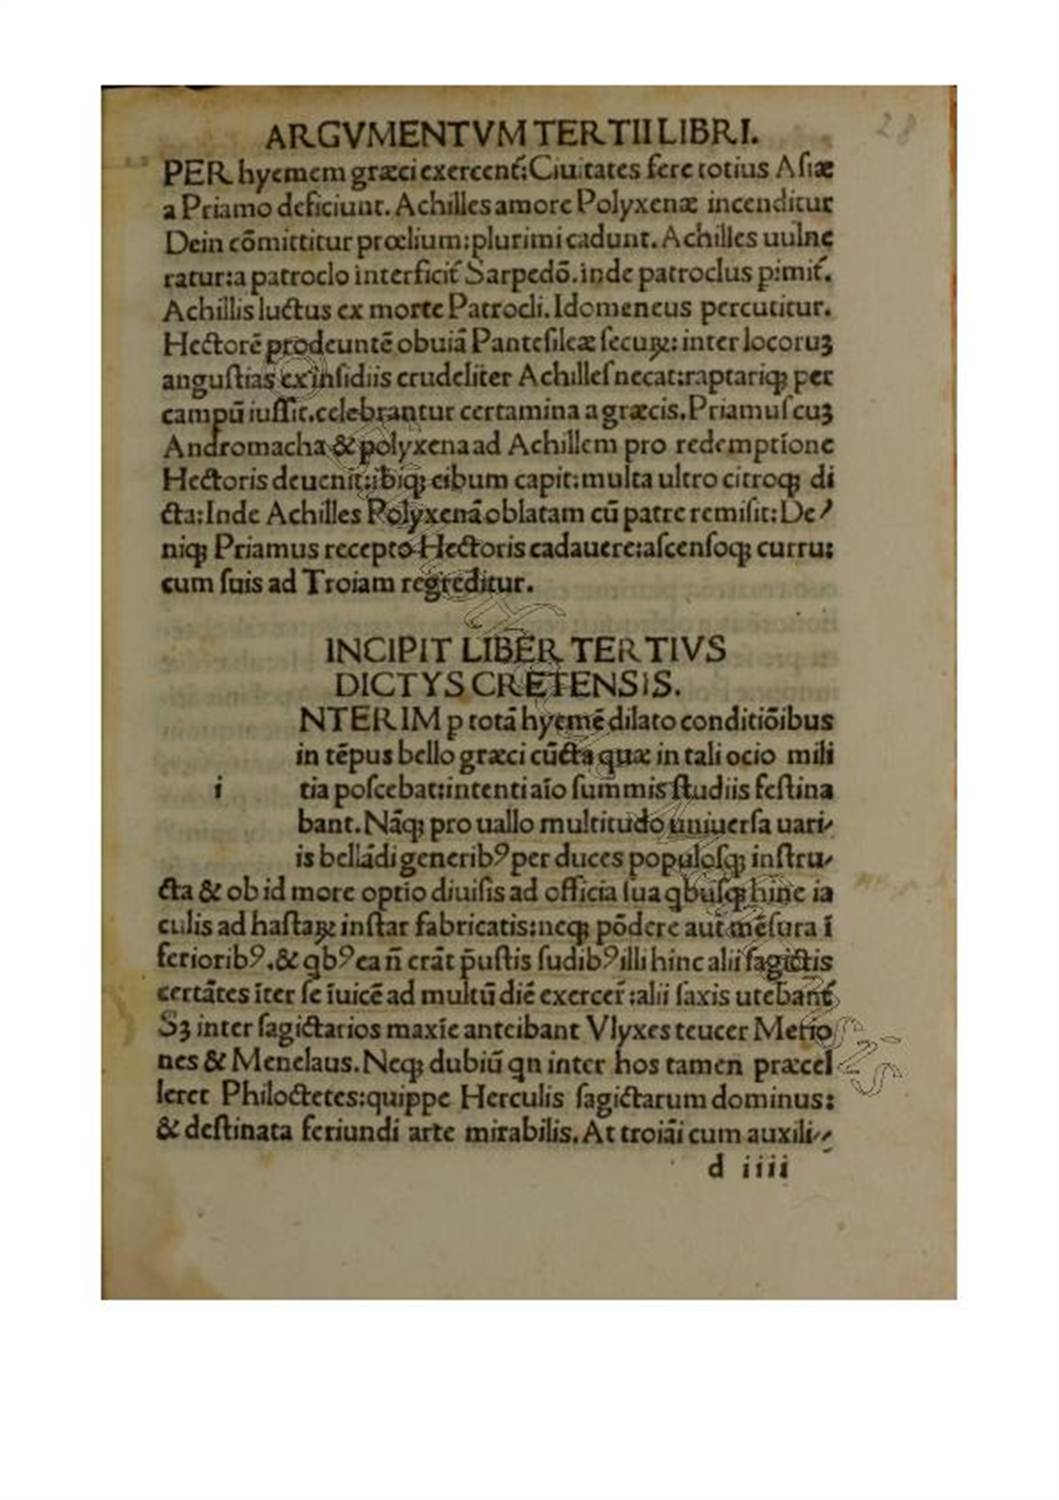 28
ARGVMENTVM TERTII LIBRI.
PER hyemem græci exercent᷑: Ciuitates fere totius Asiæ
a Priamo deficiunt. Achilles amore Polyxenæ incenditur
Dein cōmittitur prœlium: plurimi cadunt. Achilles uulne
ratur: a patroclo interficit᷑ Sarpedō. inde patroclus pimit᷑.
Achillis luctus ex morte Patrocli. Idomeneus percutitur.
Hectorē prodeuntē obuiā Pantesileæ secuꝝ: inter locoruꝫ
angustias ex insidiis crudeliter Achilles necat: raptariqꝫ per
campū iussit. celebrantur certamina a græcis. Priamus cuꝫ
Andromacha & polyxena ad Achillem pro redemptione
Hectoris deuenit: ibiqꝫ cibum capit: multa ultro citroqꝫ di
cta: Inde Achilles Polyxenā oblatam cū patre remisit: De/
niqꝫ Priamus recepto Hectoris cadauere: ascensoqꝫ curru:
cum suis ad Troiam regreditur.
INCIPIT LIBER TERTIVS
DICTYS CRETENSIS.
NTERIM p totā hyemē dilato conditiōibus
in tēpus bello græci cūcta quæ in tali ocio mili
i tia poscebat: intenti aīo summis studiis festina
bant. Nāqꝫ pro uallo multitudo uniuersa uari/
is bellādi generibꝰ per duces populosqꝫ instru/
cta & ob id more optio diuisis ad officia sua qbusqꝫ hinc ia
culis ad hastaꝝ instar fabricatis: neqꝫ pōdere aut mēsura ī
feribribꝰ. & qbꝰ ea n̄ erāt p̄ustis sudibꝰ illi hinc alii sagictis
certātes īter se īuicē ad multū diē exercer̄: alii saxis utebant᷑
Sꝫ inter sagictarios maxīe anteibant Vlyxes teucer Merio
nes & Menelaus. Neqꝫ dubiū qn inter hos tamen præcel
leret Philoctetes: quippe Herculis sagictarum dominus:
& destinata feriundi arte mirabilis. At troiāi cum auxili/
d iiii